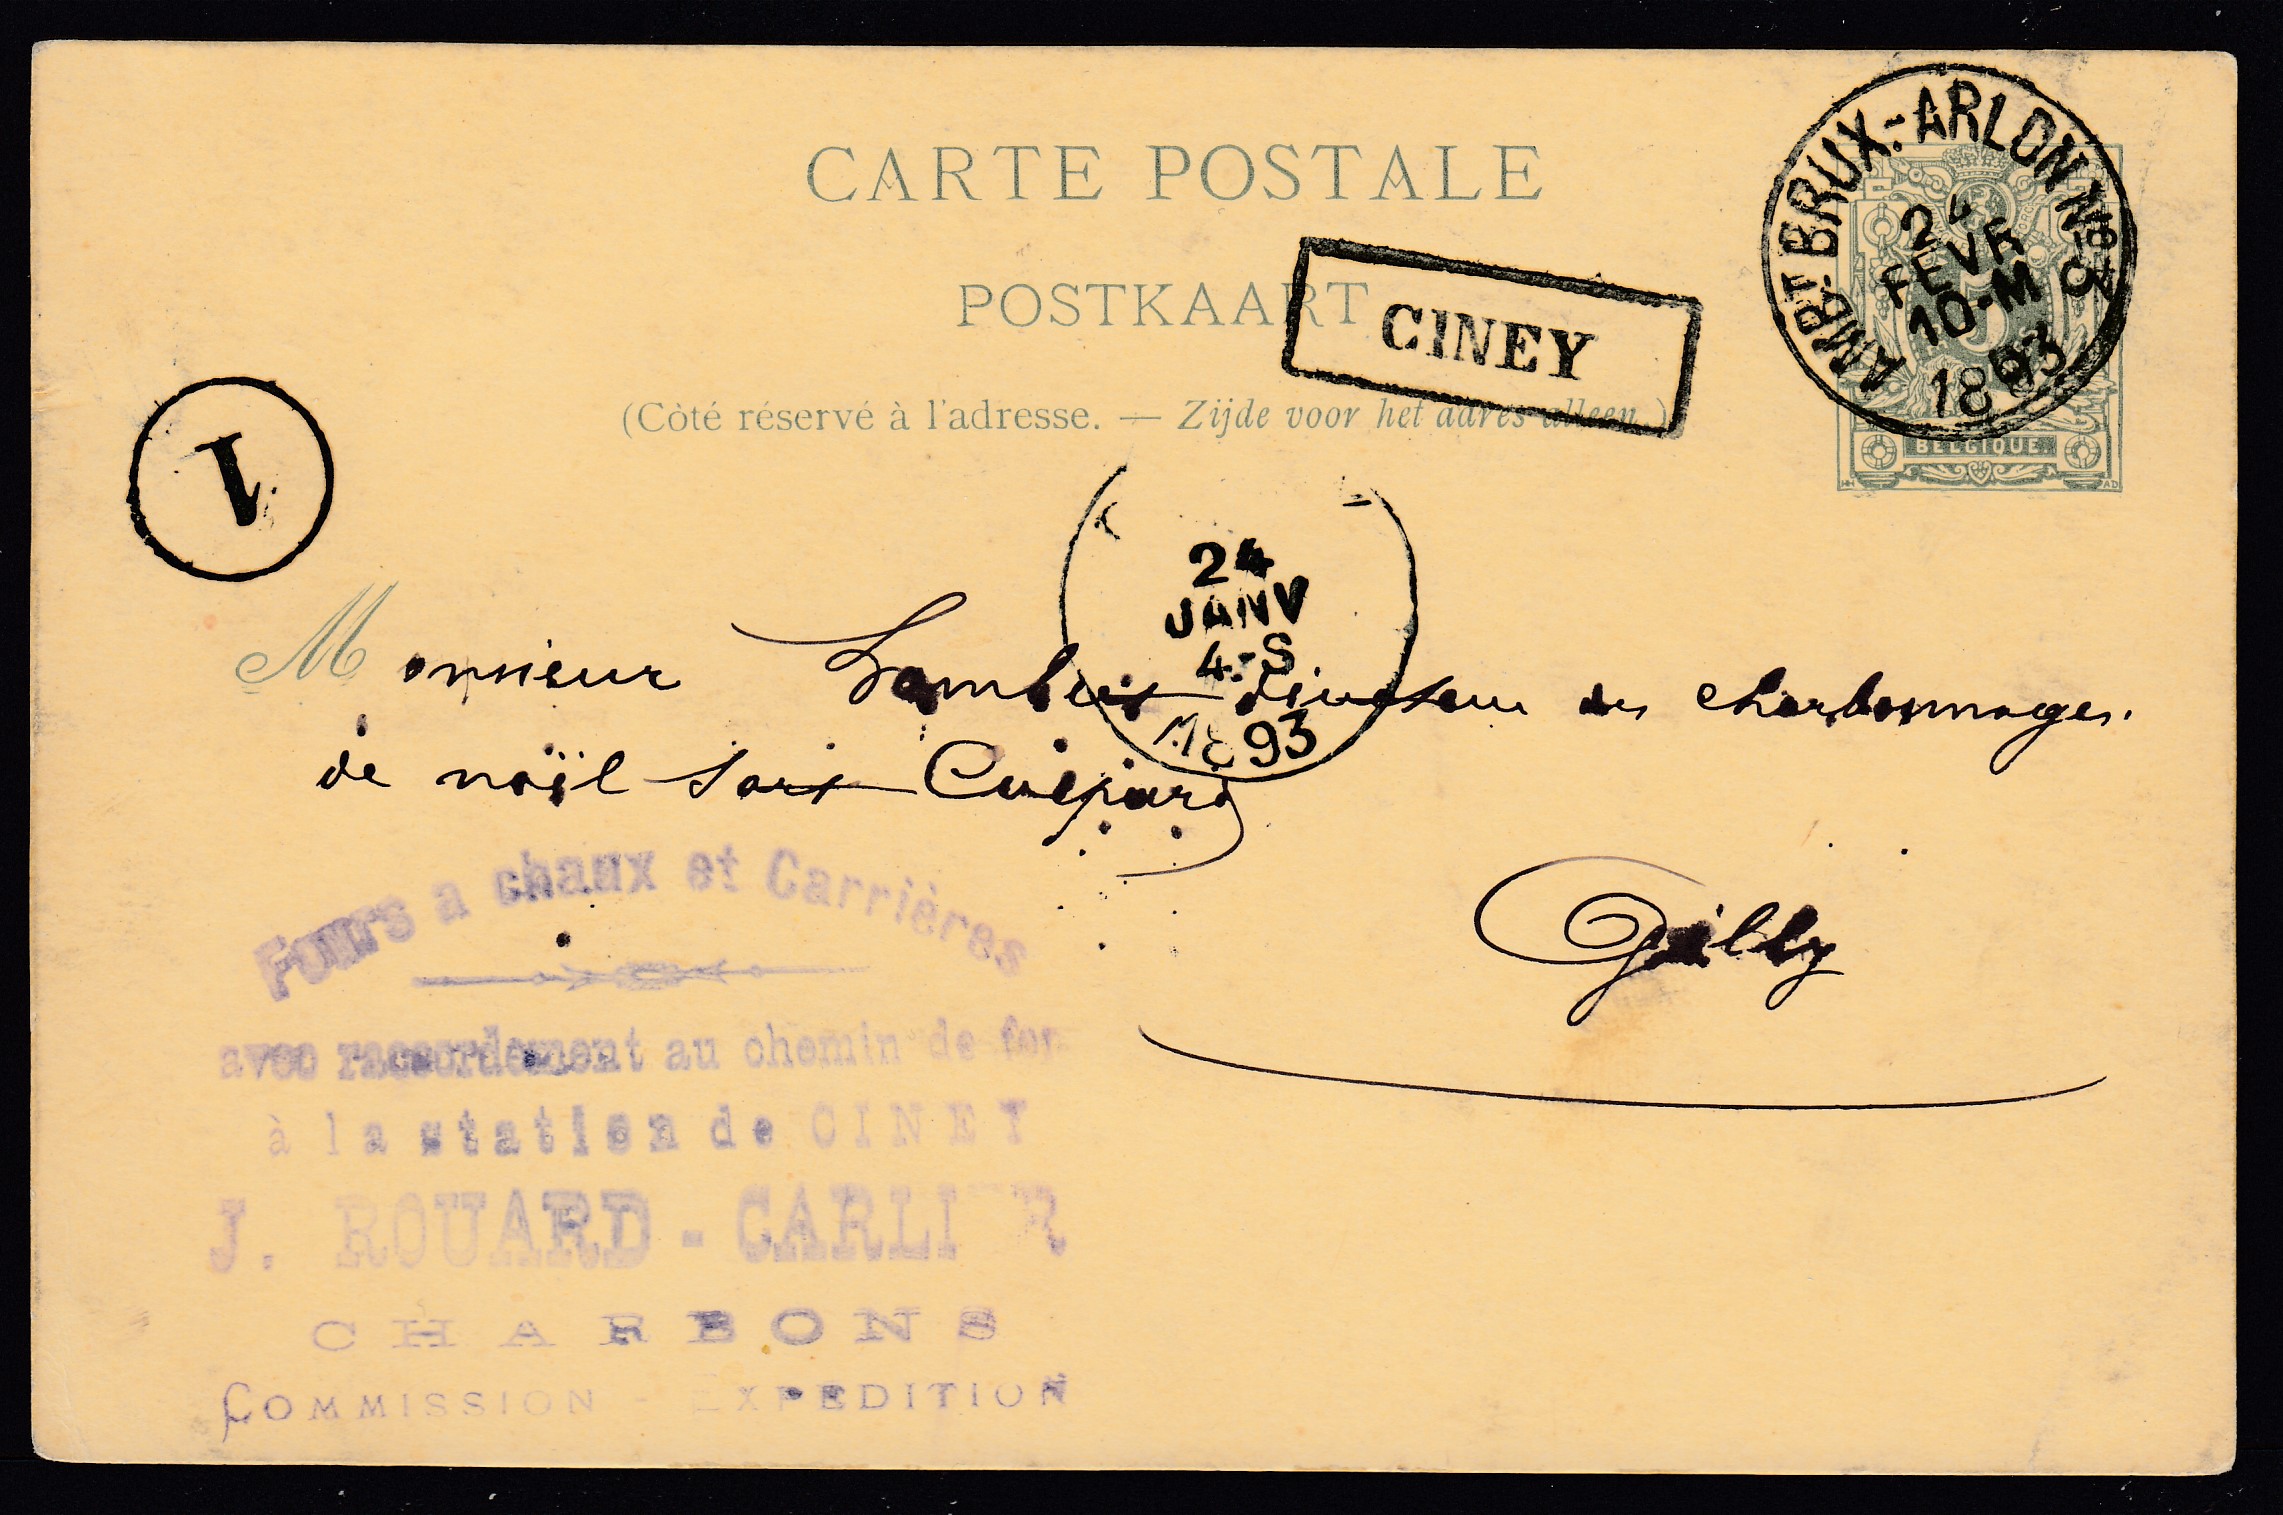 CARTE POSTALE
POSTKAART
(Côté réservé à l'adresse. — Zijde voor het adres alleen.)
CINEY
AMBT BRUX.-ARLON N°
24
FEVR
10-M
1893
BELGIQUE
1
24
JANV
4-S
1893
Monsieur Lambert directeur des charbonnages
de noël sart Culpart
Gilly
Fours a chaux et Carrières
avec raccordement au chemin de fer
à la station de CINEY
J. ROUARD - CARLIER
CHARBONS
COMMISSION - EXPEDITION